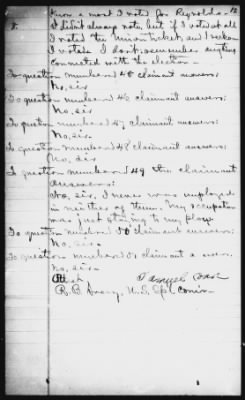 Know a most I voted for Reynolds.
I didn't always vote, but if I voted at all
I voted the Union ticket, and I reckon
I voted. I don't remember anything
connected with the election.
To question numbered 45 claimant answers:
No, sir.
To question numbered 46 claimant answers:
No, sir.
To question numbered 47 claimant answers:
No, sir.
To question numbered 48 claimant answers:
No, sir.
To question numbered 49 the claimant
answers:
No, sir, I never was employed
in neither of them. My occupation
was just staying to my place.
To question numbered 50 claimant answers:
No, sir.
To question numbered 51 claimant answers:
No, sir.
Attest Samuel
R. B. Avery, U.S. Spl Comr.